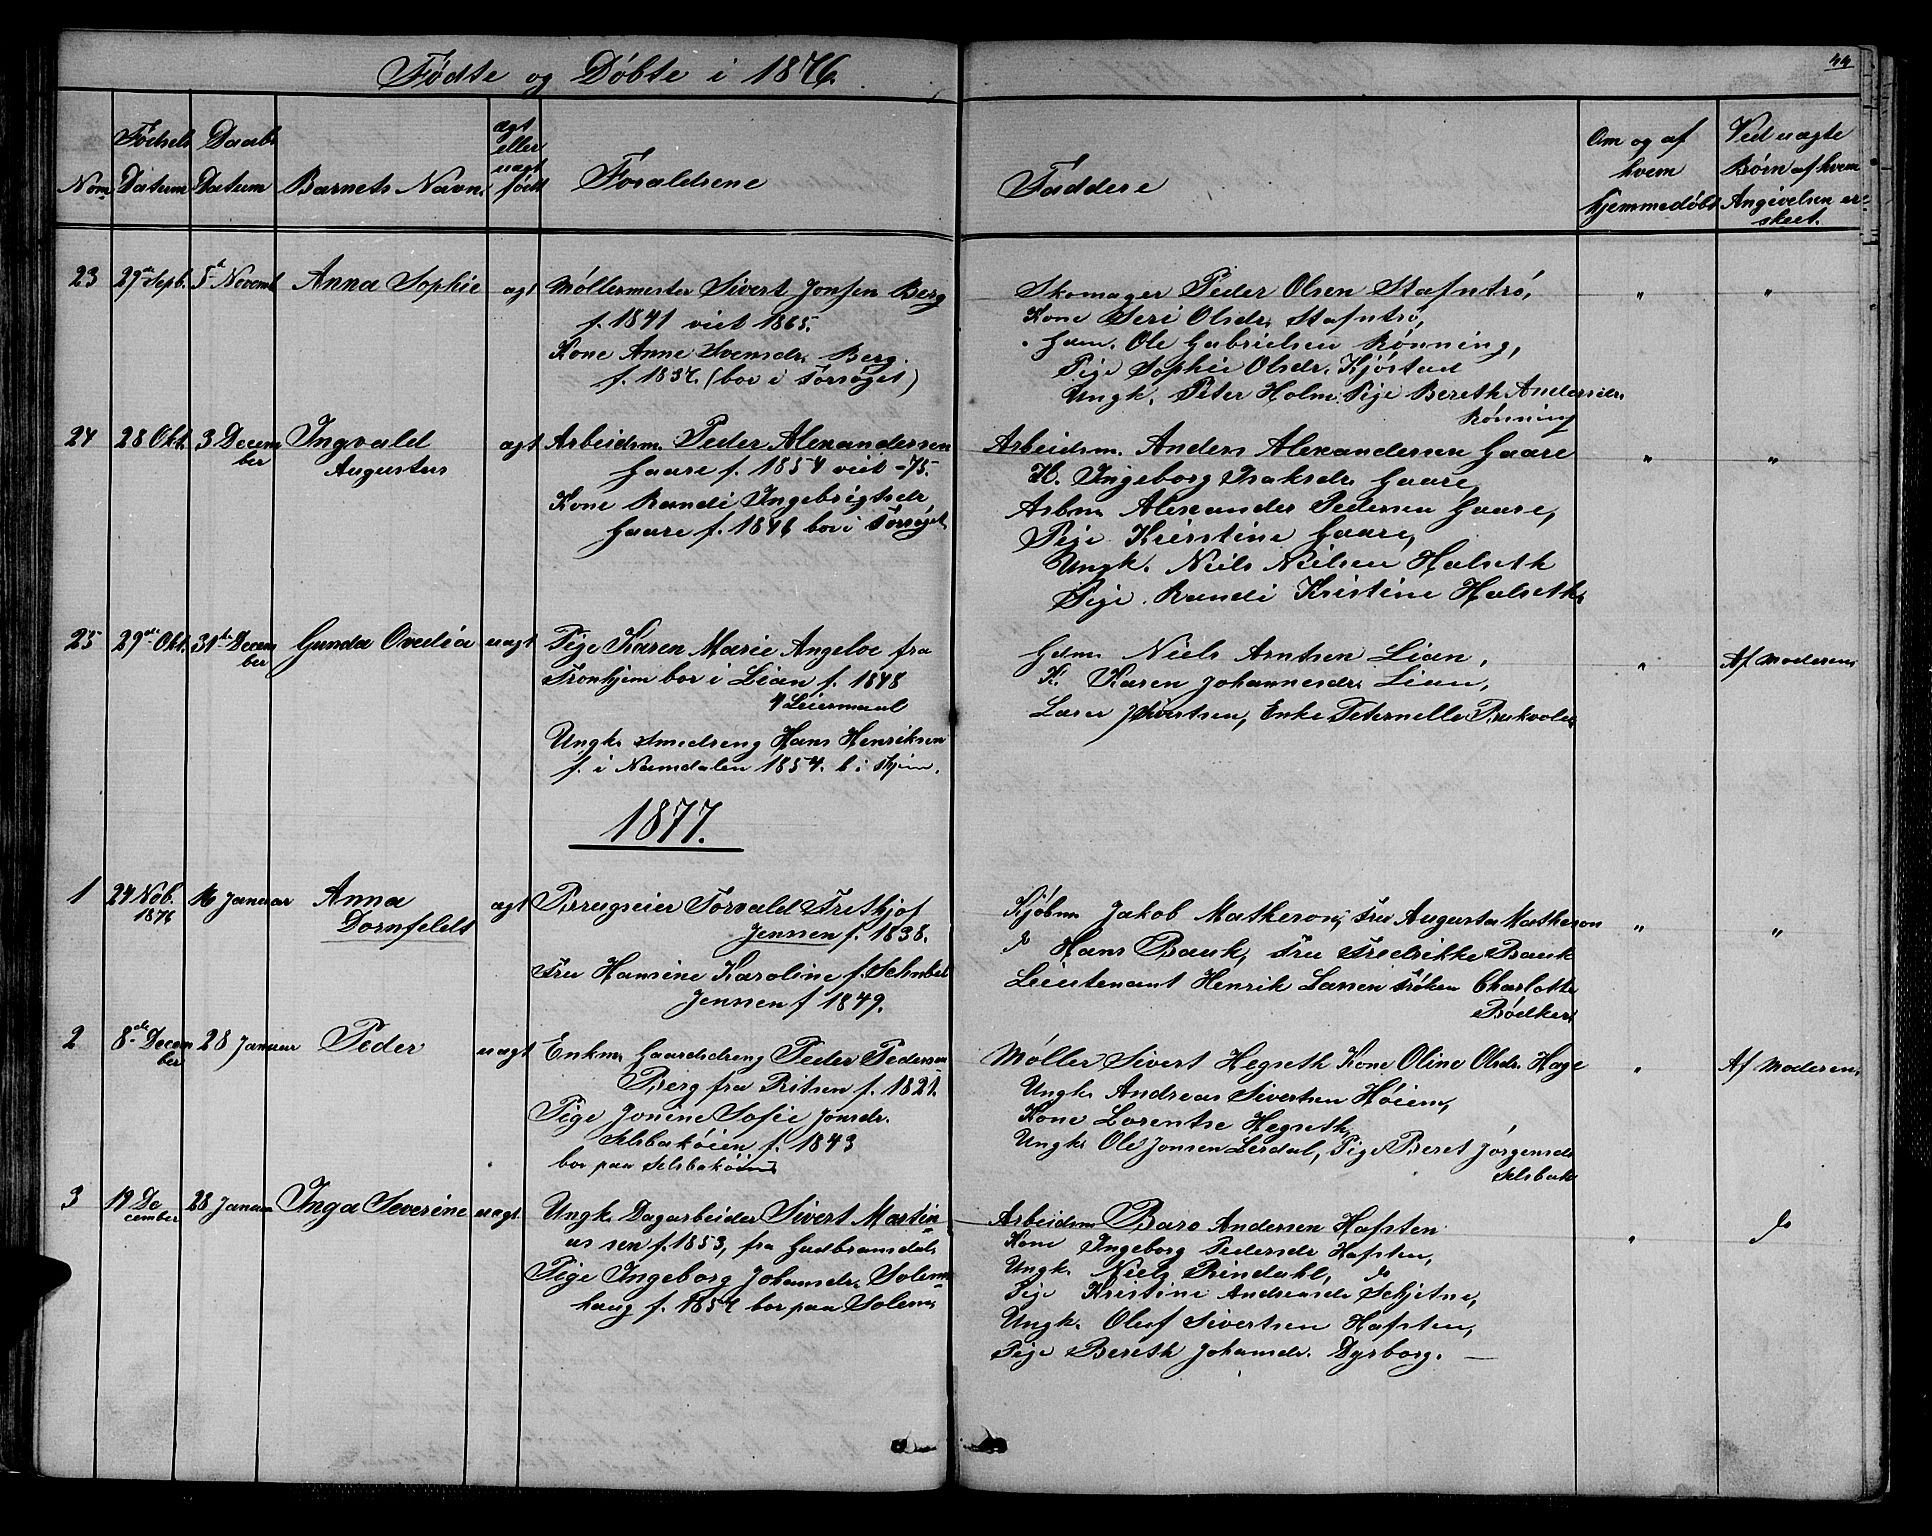 Fødte og Døbte i 1876.
44
Nom
Fødsels Datum
Daabs Datum
Barnets Navn
ægt eller uægt født
Forældrene
Faddere
Om og af hvem hjemmedøbt
Ved uægte Børn af hvem Angivelsen er skeet.
23 29de Septb. 5te Novemb Anna Sophie ægt
Møllermester Sivert Jonsen Berg
f. 1841 viet 1865.
Kone Anne Svensdr. Berg.
f. 1837. (bor i Forsøget)
Skomager Peder Olsen Stafntrø,
Kone Seri Olsdr. Stafntrø,
Gdm. Ole Gabrielsen Rønning,
Pige Sophie Olsdr. Kjøstad
Ungk. Peter Holm Pige Bereth Andersdr.
Rønning
" "
24 28 Okt. 3 Decem
ber
Ingvald
Augustus
ægt
Arbeidsm. Peder Alexandersen
Gaare f. 1854 viet -75.
Kone Randi Ingebrigtsdr
Gaare f. 1846 bor i Forsøget
Arbeidsm. Anders Alexandersen Gaare
K. Ingeborg Isaksdr. Gaare,
Arbm Alexander Pedersen Gaare,
Pige Kristine Gaare,
Ungk. Niels Nielsen Halseth
Pige Randi Kristine Halseth.
" "
25 29de Okt. 31te Decem
ber
Gunda Ovedia uægt
Pige Karen Marie Angeloe fra
Tronhjem bor i Lian f. 1848
4 Leiermaal
Ungk. Smedreng Hans Henriksen
f. i Namdalen 1854. b. i Thjem.
Gdm Niels Arntsen Lian,
K. Karen Johannesdr. Lian,
Lærer Sivertsen, Enke Peternelle
" Af Moderen
1877.
1 24 Nob. 16 Januar
1876
Anna
Dornfeldt
ægt
Brugseier Torvald Frethjof
Jenssen f. 1838.
Fru Hansine Karoline f. Schnbel
Jenssen f 1849.
Kjøbm Jakob Matheson, Fru Augusta Matheson
do Hans Bauk, Fru Fredrikke Bauk
Lieutenant Henrik Lassen Frøken Charlotte
Bødker
" "
2 8de Decem
ber
28 Januar Peder uægt
Enkm. Gaardsdreng Peder Pedersen
Berg fra Ritsen f. 1821.
Pige Jonine Sofie Jonsdr.
Selsbakøien f. 1843
bor paa Selsbakøien
Møller Sivert Hegseth Kone Oline Olsdr. Hage
Ungk. Andreas Sivertsen Høiem,
Kone Lorentse Hegseth,
Ungk. Ole Jonsen Leisdal, Pige Beret Jørgensdr
Selsbak
" Af Moderen
3 19 De
cember
28 Januar Inga Severine uægt.
Ungk. Dagarbeider Sivert Martin
us sen f. 1853, fra Gudbransdal,
Pige Ingeborg Johansdr. Solem
haug f. 1854 bor paa Solem.
Arbeidsm Baro Andersen Hafsten
Kone Ingeborg Pedersdr Hafsten,
Ungk. Niels Rindahl, do
Pige Kristine Andreasdr Schjetne,
Ungk. Oluf Sivertsen Hafsten,
Pige Bereth Johansdr. Dyrborg.
" do